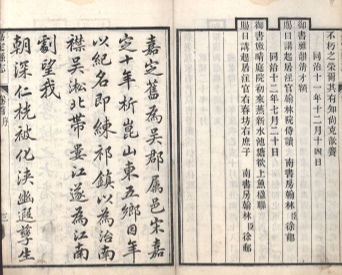 不朽之榮爾其有知尚克歆饗
同治十一年十二月十四日
御書雅韻清才額
賜日講起居注官翰林院侍講 南書房翰林臣徐郙
御書雅晴庭院初來燕新水池塘欲上魚楹聯
同治十二年七月二十日
賜日講起居注官右春坊右庶子 南書房翰林臣徐郙
嘉定舊為吳郡屬邑宋嘉
定十年析崑山東五鄉因年
以紀名即練祁鎮以為治南
襟吳淞北帶婁江遂為江南
劇望我
朝深仁桄被化浹幽遐孳生